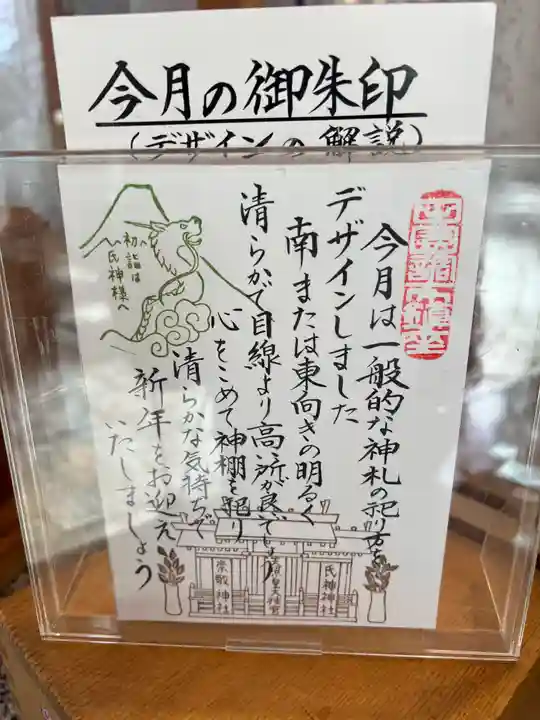 今月の御朱印
(デザインの解説)
今月は一般的な神札の祀り方を
デザインしました
南または東向きの明るく
清らかで目線より高い所が良でしょう
心をこめて神棚を祀り
清らかな気持ちで
新年をお迎え
いたしましょう
初詣は
氏神様へ
崇敬神社
皇大神宮
氏神神社